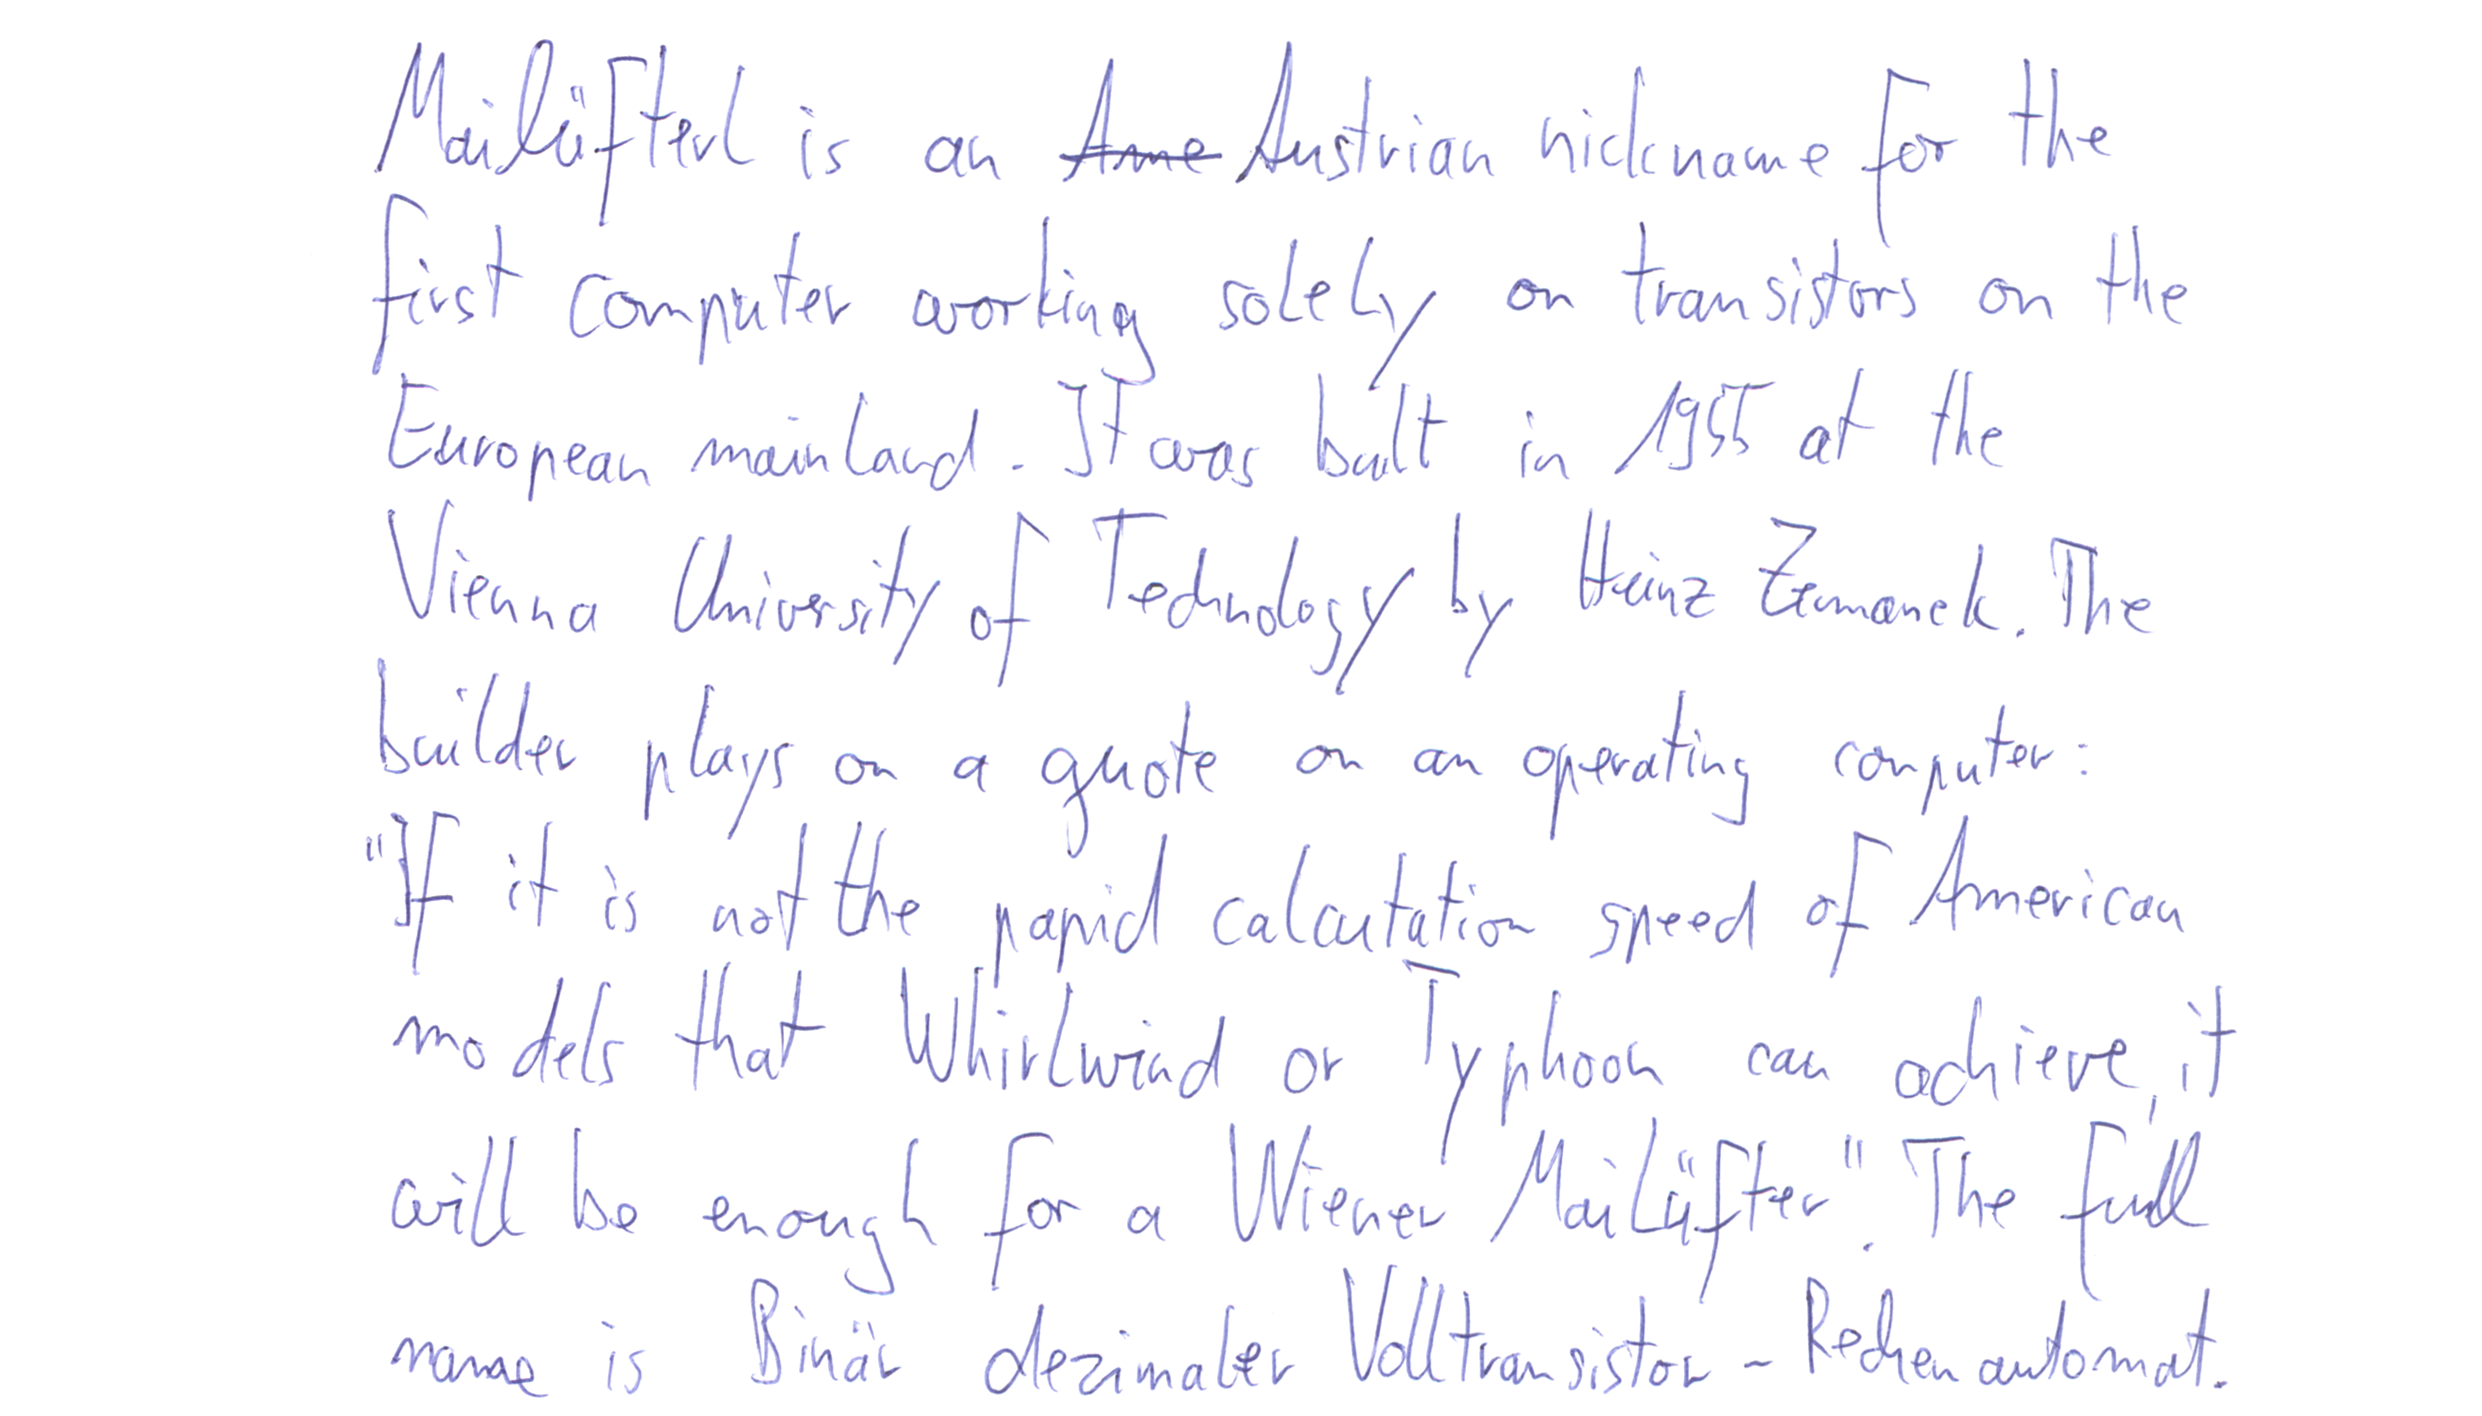 Mailüfterl is an Ame Austrian nickname for the
first computer working solely on transistors on the
European mainland. It was built in 1955 at the
Vienna University of Technology by Heinz Zemanek. The
builder plays on a quote on an operating computer:
"If it is not the rapid calculation speed of American
models that Whirlwind or Typhoon can achieve, it
will be enough for a Wiener Mailüfter". The full
name is Binär dezimaler Volltransistor - Rechenautomat.